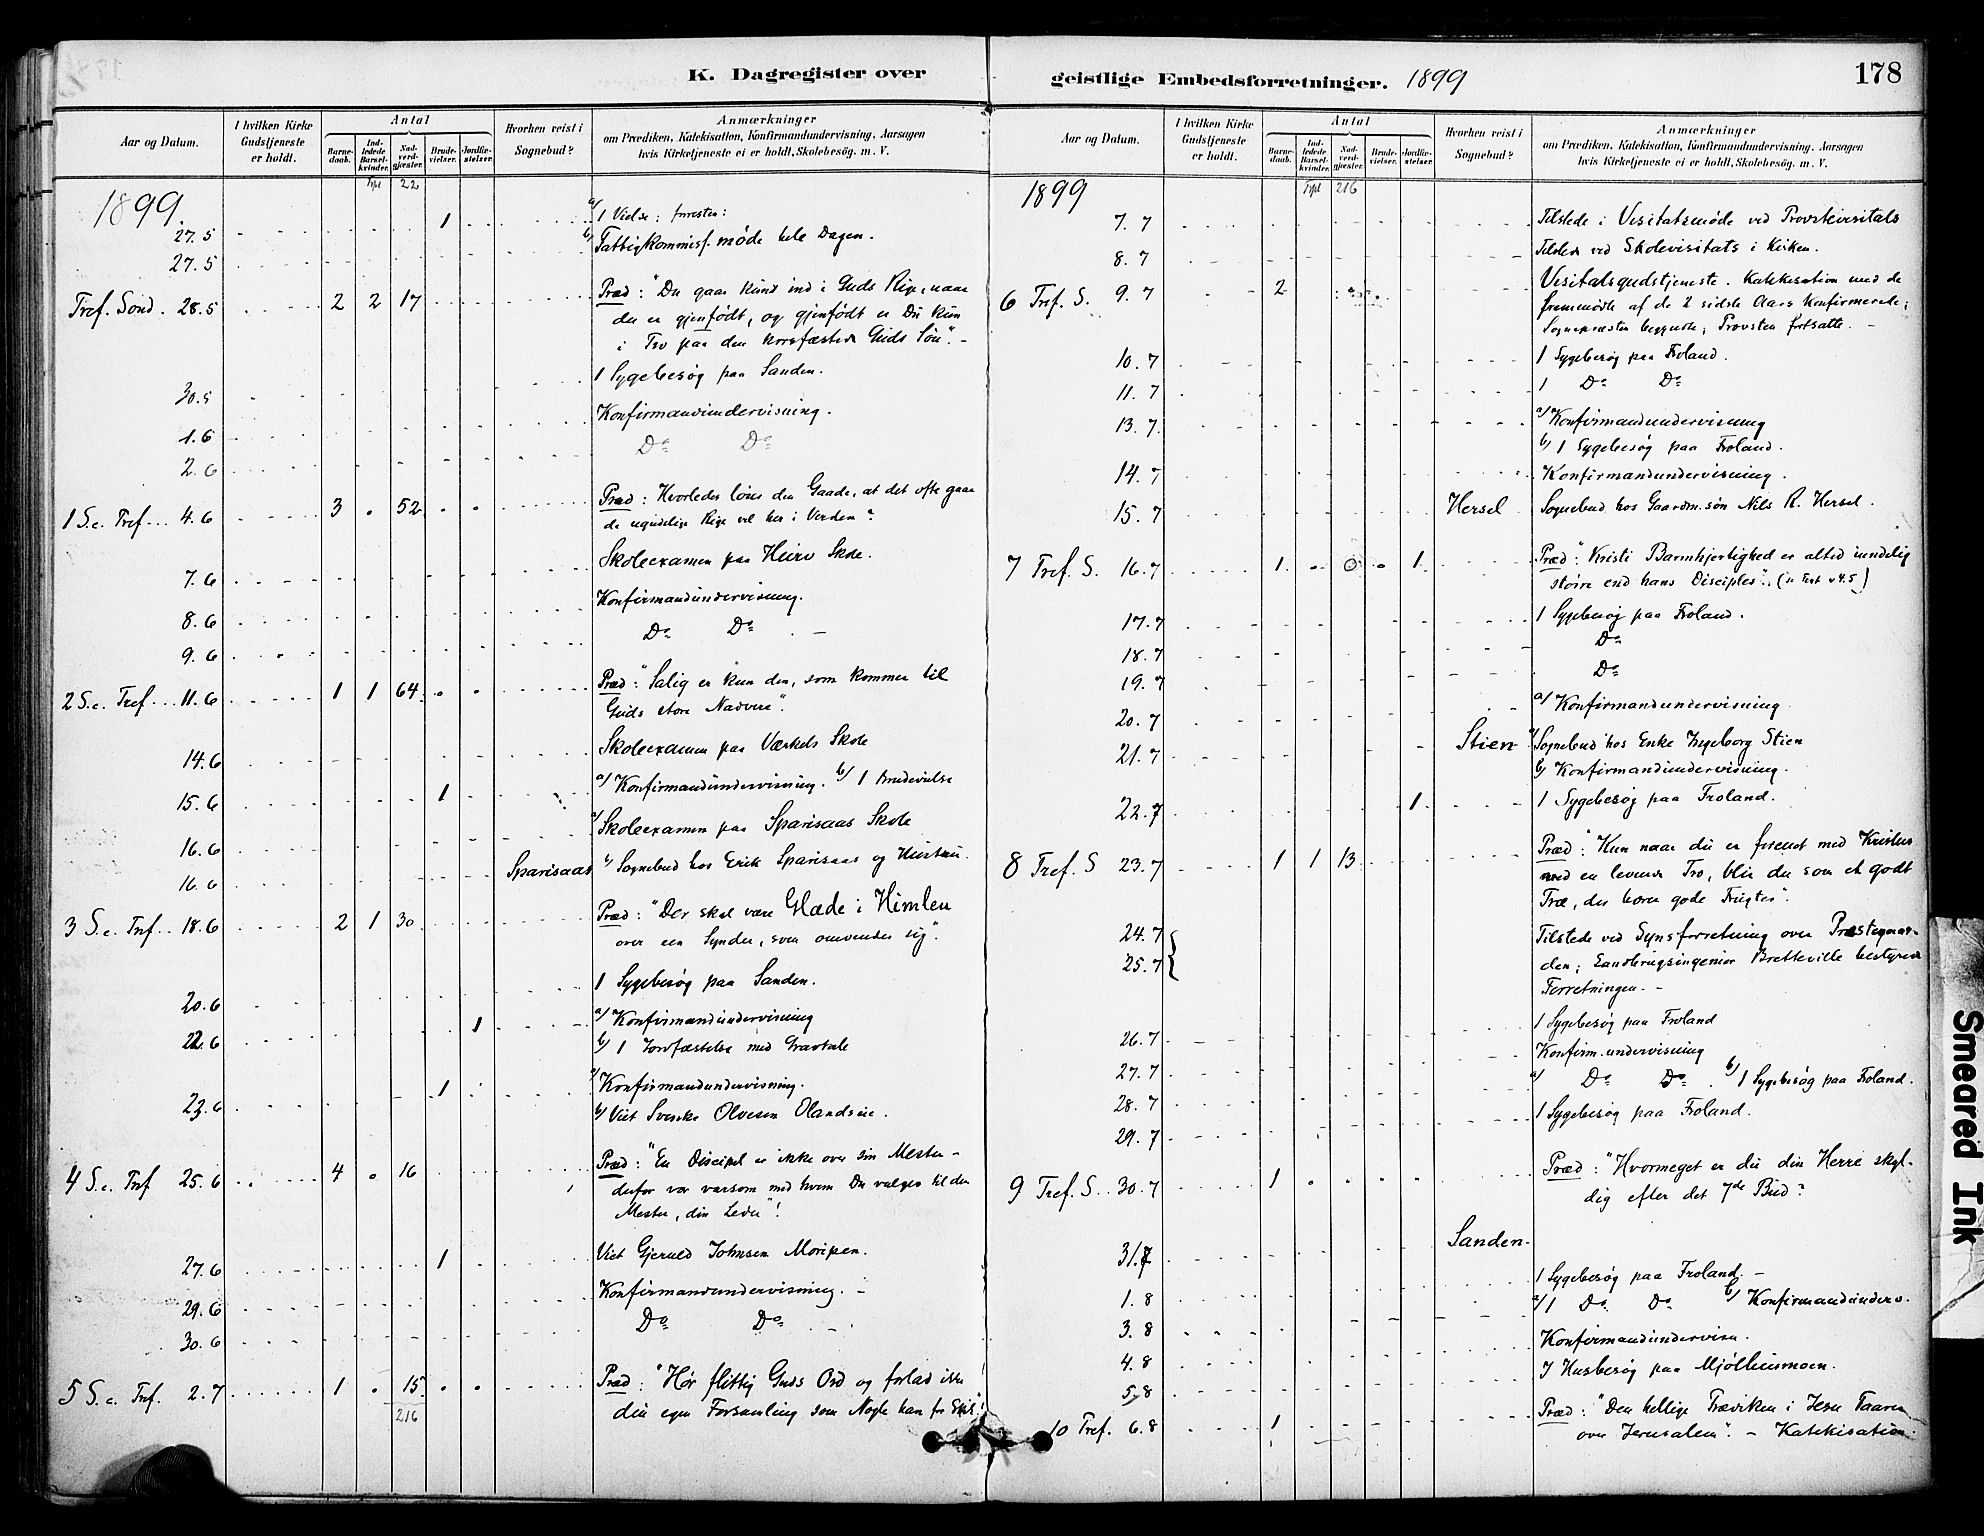 K. Dagregister over
Aar og Datum.
I hvilken Kirke Gudstjeneste er holdt.
Antal
Barnedaab.
Indledede Barselkvinder.
Nadverdgjæster.
Brudevielser.
Jordfæstelser.
Hvorhen reist i Sognebud?
Anmærkninger
om Prædiken, Katekisation, Konfirmandundervisning, Aarsagen
hvis Kirketjeneste ei er holdt, Skolebesøg, m. V.
22
1899.
27.5 1 a/ 1 Vielse:
27.5 b/ Fattigkommiss. møde hele Dagen.
Tref. Sönd. 28.5 2 2 17 Præd: "Du gaar kund ind i Guds Rige, naar
du er gjenfödt, og gjenfödt er Du kun
i Tro paa den korsfæstede Guds Sön". -
30.5 1 Sygebesøg paa Sanden.
1.6 Konfirmandundervisning.
2.6 Do Do
1 S. e. Tref. 4.6 3 . 52 Præd: Hvorledes løses den Gaade, at det ofte gaar
de ugudelige vel her i Verden?
7.6 Skoleexamen paa Heiro Skole.
8.6 Konfirmandundervisning.
9.6 Do Do
2 S. e. Tref. 11.6 1 1 64 Præd: "Salig er kun den, som kommer til
Guds store Nadvere".
14.6 Skoleexamen paa Værkets Skole
15.6 1 a/ Konfirmandundervisning. b/ 1 Brudevielse
16.6 a/ Skoleexamen paa Sparisaas Skole
16.6 Sparisaas b/ Sognebud hos Erik Sparisaas og Hustru.
3 S. e. Tref. 18.6 2 1 30 Præd: "Der skal være Glæde i Himlen
over een Synder, som omvender sig".
20.6 1 Sygebesøg paa Sanden.
22.6 1 a/ Konfirmandundervisning
b/ 1 Jordfæstelse med Gravtale
23.6 1 a/ Konfirmandundervisning.
b/ Viet Olvesen
4 S. e. Tref 25.6 4 . 16 Præd: "En Discipel er ikke over sin Mester -
derfor vær varsom med hvem Du vælger til din
Mester, din Leder"!
27.6 1 Viet Gjeruld Johnsen Moripen.
29.6 Konfirmandundervisning. -
30.6 Do Do
5 S. e. Tref. 2.7 1 . 15 Præd: "Hør flittig Guds Ord og forlad ikke
din egen Forsamling som Nogle har for Skik"!
216
geistlige Embedsforretninger. 1899
178
Aar og Datum.
I hvilken Kirke Gudstjeneste er holdt.
Antal
Barnedaab.
Indledede Barselkvinder.
Nadverdgjæster.
Brudevielser.
Jordfæstelser.
Hvorhen reist i Sognebud?
Anmærkninger
om Prædiken, Katekisation, Konfirmandundervisning, Aarsagen
hvis Kirketjeneste ei er holdt, Skolebesøg, m. V.
216
1899
7.7 Tilstede i Visitatsmøde ved Provstevisitats
8.7 Tilstede ved Skolevisitats i Kirken.
6 Tref. S. 9.7 2 Visitatsgudstjeneste. Katekisation med de
fremmødte af de 2 sidste Aars Konfirmerede;
Sognepræsten begyndte; Provsten fortsatte. -
10.7 1 Sygebesøg paa Froland.
11.7 1 Do Do
13.7 a/ Konfirmandundervisning
b/ 1 Sygebesøg paa Froland.
14.7 Konfirmandundervisning.
15.7 Hersel Sognebud hos Gaardm.søn Nils R. Hersel.
7 Tref. S. 16.7 1 . 0 . 1 Præd: "Kristi Barmhjertighed er altid uendelig
større end hans Disciples".
17.7 1 Sygebesøg paa Froland.
18.7 Do
19.7 Do
20.7 a/ Konfirmandundervisning
21.7 Stien a/ Sognebud hos Enke Ingeborg Stien
b/ Konfirmandundervisning.
22.7 1 1 Sygebesøg paa Froland.
8 Tref. S 23.7 1 1 13 Præd: "Kun naar du er forenet med Kristus
ved en levende Tro, blir du som et godt
Træ, der bærer gode Frugter".
24.7 Tilstede ved Synsforretning over Præstegaar-
25.7 den; Landbrugsingeniør Bretteville bestyrede
Forretningen. -
26.7 1 Sygebesøg paa Froland
27.7 Konfirm.undervisning
28.7 a/ Do Do. b/ 1 Sygebesøg paa Froland.
29.7 1 Sygebesøg paa Froland.
9 Tref. S. 30.7 1 Præd: "Hvormeget er du din Herre skyl-
dig efter det 7de Bud?
31.7 Sanden.
1.8 1 Sygebesøg paa Froland. -
3.8 a/ 1 Do Do b/ Konfirmandunderv.
4.8 Konfirmandundervisn.
5.8 1 Husbesøg paa Mjølhusmoen.
10 Tref. 6.8 1 Præd: "Den hellige i Jesu Taarer
over Jerusalem". - Katekisation.
Smeared Ink